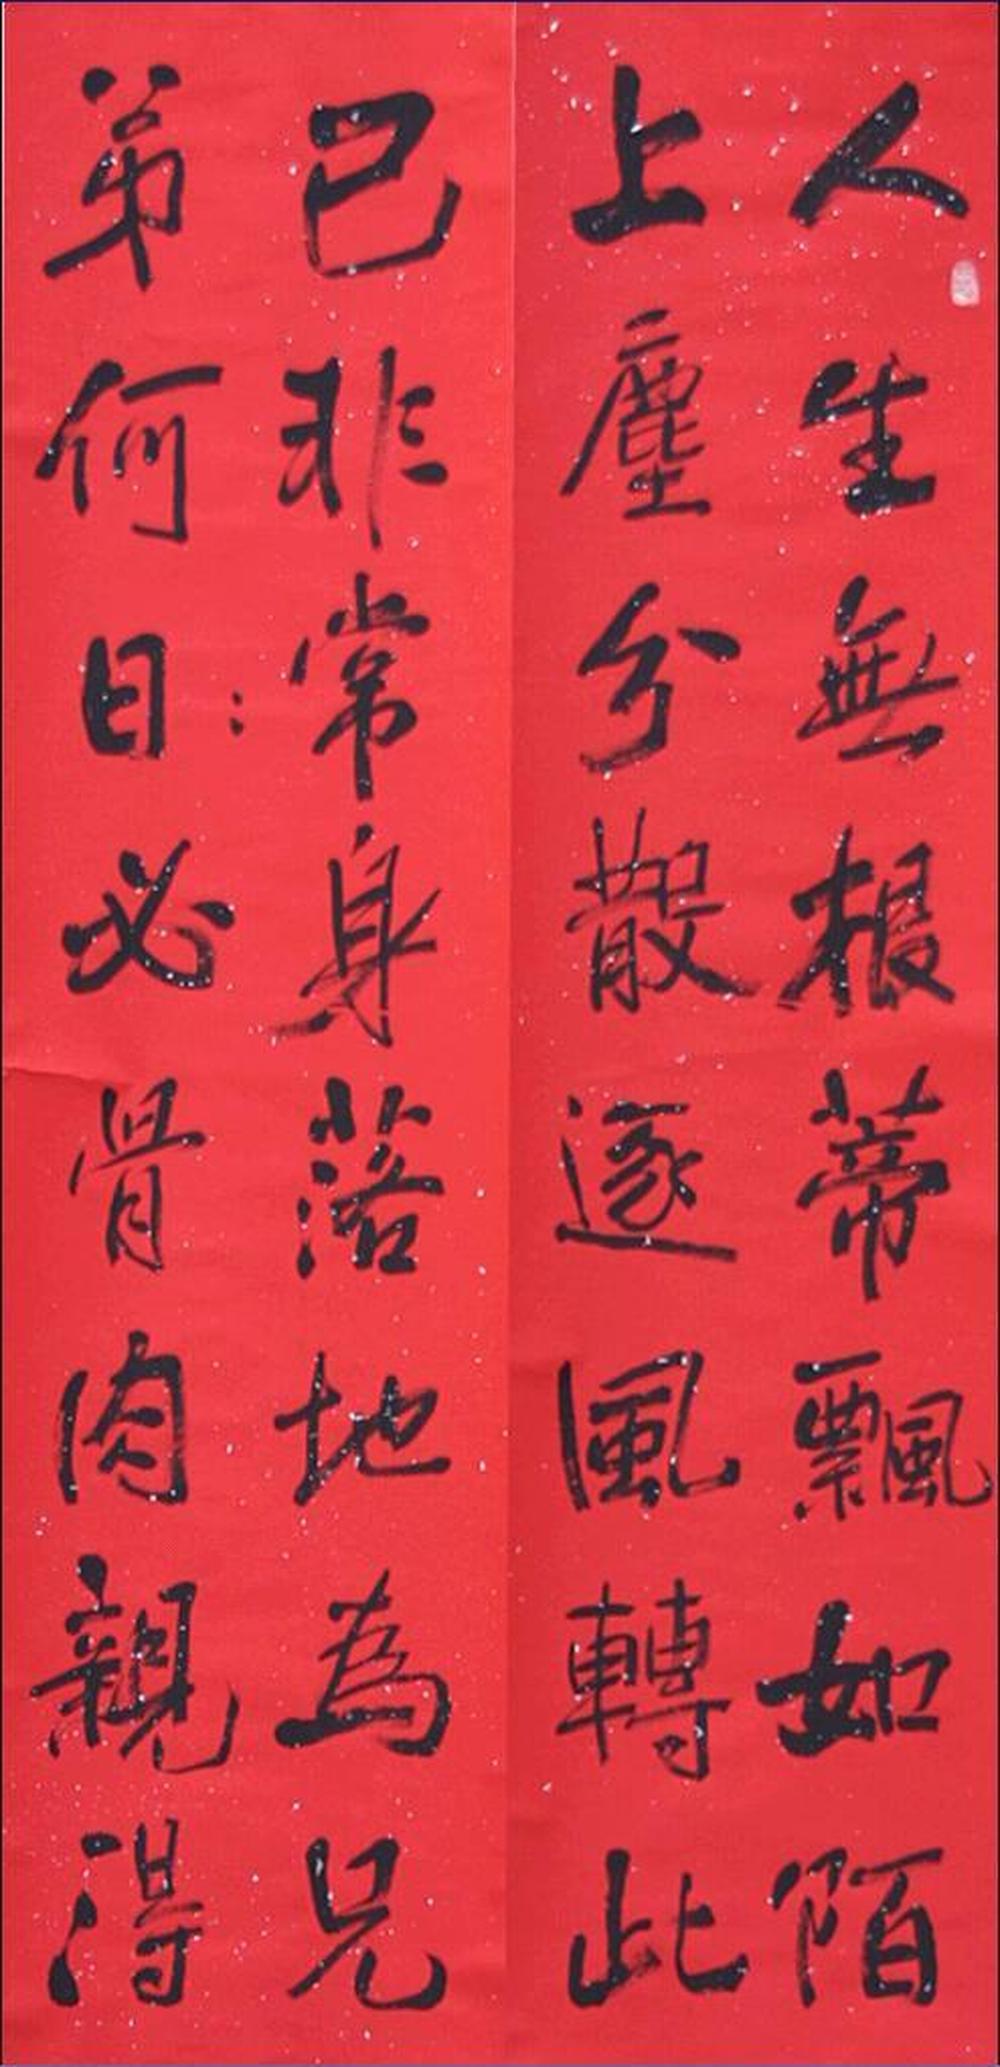 人生無根蒂飄如陌
上塵兮散逐風轉此
已非常身落地為兄
弟何日:必骨肉親得